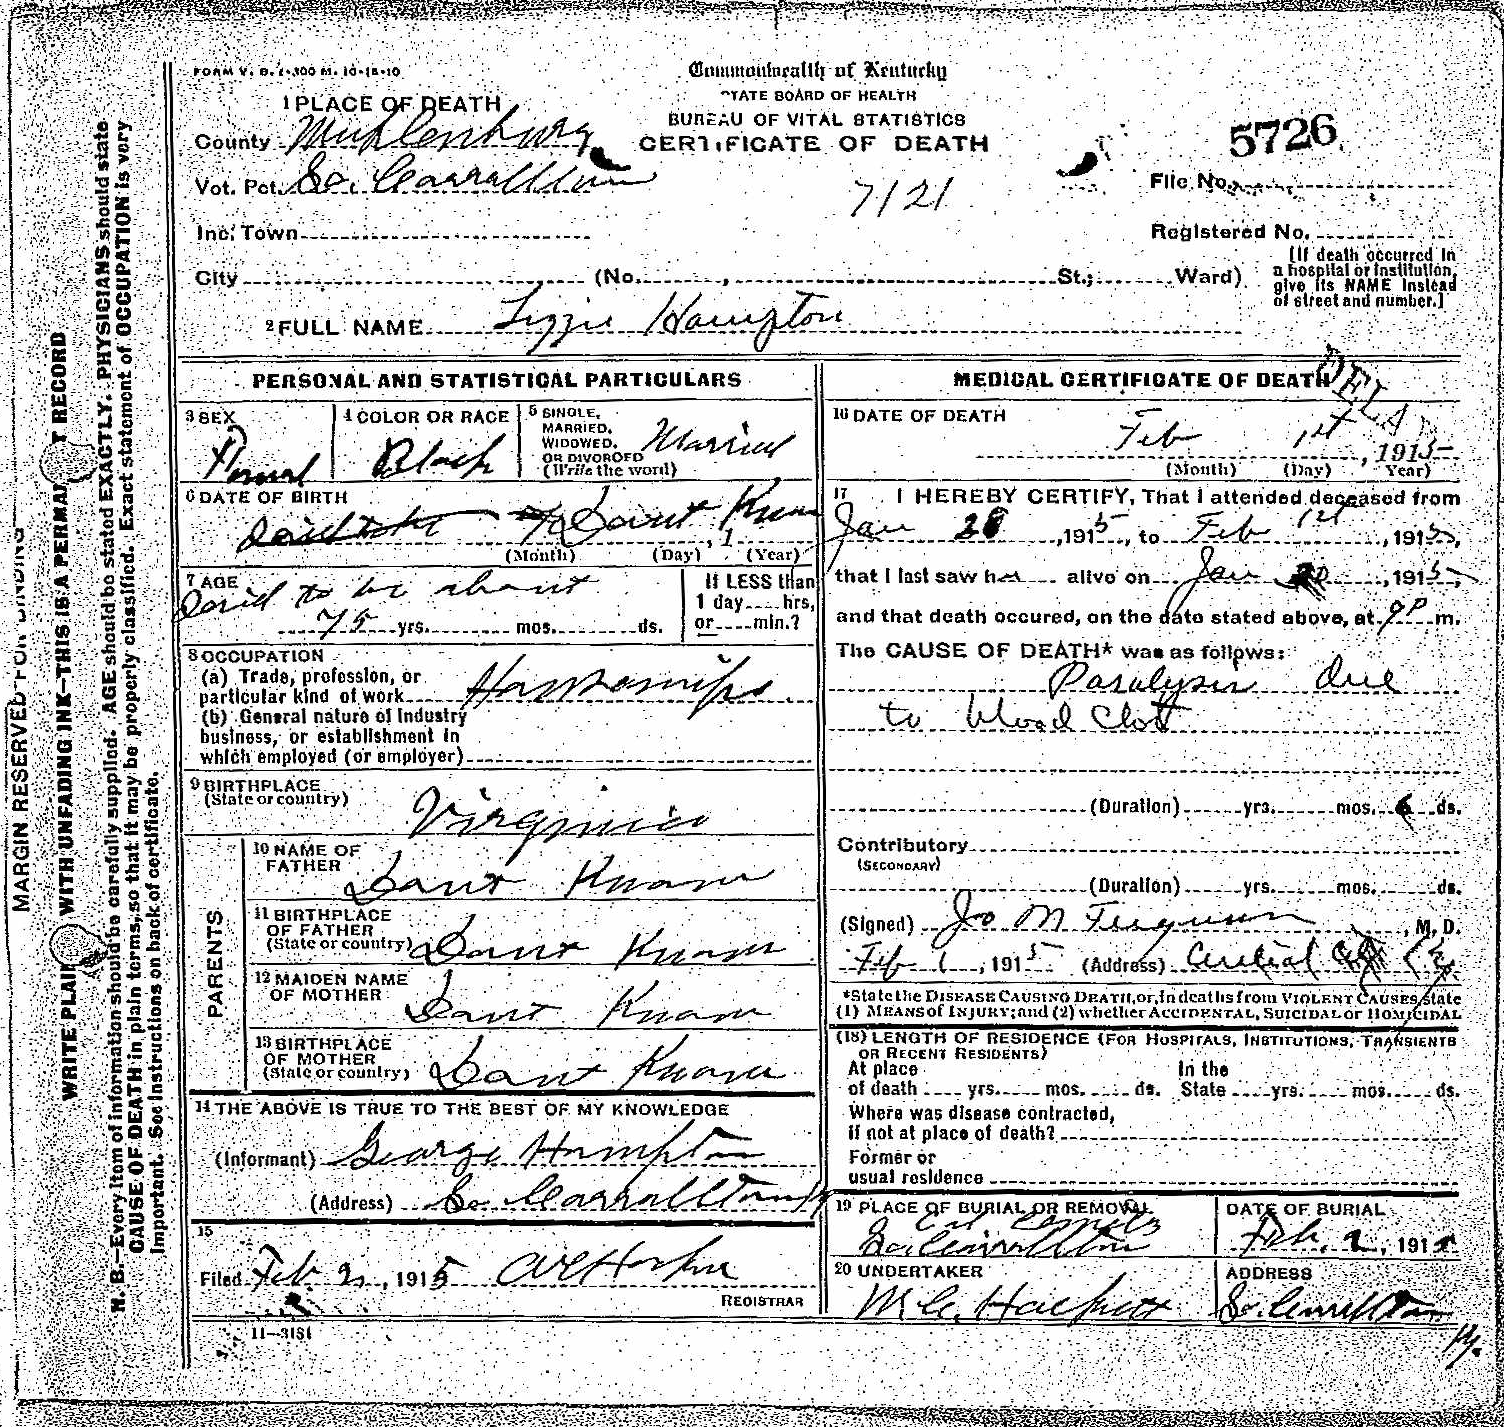 FORM V. S. 1-300 M. 10-18-10
Commonwealth of Kentucky
STATE BOARD OF HEALTH
BUREAU OF VITAL STATISTICS
CERTIFICATE OF DEATH
5726
7121
1 PLACE OF DEATH
County Muhlenburg
Vot. Pct. So. Carrollton
File No.
Inc. Town
Registered No.
City (No. , St.; Ward)
[If death occurred in
a hospital or institution,
give its NAME instead
of street and number.]
2 FULL NAME Lizzie Hampton
PERSONAL AND STATISTICAL PARTICULARS
3 SEX
Femal
4 COLOR OR RACE
Black
5 SINGLE,
MARRIED,
WIDOWED,
OR DIVORCED
(Write the word)
Married
6 DATE OF BIRTH
Dont Know
(Month) (Day) , 1 (Year)
7 AGE
Said to be about
75 yrs. mos. ds.
If LESS than
1 day hrs,
or min.?
8 OCCUPATION
(a) Trade, profession, or
particular kind of work
(b) General nature of industry
business, or establishment in
which employed (or employer)
9 BIRTHPLACE
(State or country)
Virginia
PARENTS
10 NAME OF
FATHER
Dont Know
11 BIRTHPLACE
OF FATHER
(State or country)
Dont Know
12 MAIDEN NAME
OF MOTHER
Dont Know
13 BIRTHPLACE
OF MOTHER
(State or country)
Dont Know
14 THE ABOVE IS TRUE TO THE BEST OF MY KNOWLEDGE
(Informant) George Hampton
(Address) So Carrollton Ky
15
Filed Feb 2, 1915
REGISTRAR
11-3181
MEDICAL CERTIFICATE OF DEATH
DELA
16 DATE OF DEATH
Feb 1st, 1915
(Month) (Day) Year)
17 I HEREBY CERTIFY, That I attended deceased from
Jan 28, 1915, to Feb 1st, 1915,
that I last saw her alive on Jan 30, 1915,
and that death occured, on the date stated above, at 9P m.
The CAUSE OF DEATH* was as follows:
Paralysis due
to blood Clot
(Duration) yrs. mos. 6 ds.
Contributory
(SECONDARY)
(Duration) yrs. mos. ds.
(Signed) Jo M Ferguson, M. D.
Feb 1, 1915 (Address) Central City Ky
*State the DISEASE CAUSING DEATH, or, in deaths from VIOLENT CAUSES, state
(1) MEANS of INJURY; and (2) whether ACCIDENTAL, SUICIDAL or HOMICIDAL
(18) LENGTH OF RESIDENCE (FOR HOSPITALS, INSTITUTIONS, TRANSIENTS
OR RECENT RESIDENTS)
At place In the
of death yrs. mos. ds. State yrs. mos. ds.
Where was disease contracted,
if not at place of death?
Former or
usual residence
19 PLACE OF BURIAL OR REMOVAL
So. Carrollton
DATE OF BURIAL
Feb. 2, 1915
20 UNDERTAKER
ADDRESS
So. Carrollton
Ky.
MARGIN RESERVED FOR BINDING
WRITE PLAINLY WITH UNFADING INK—THIS IS A PERMANENT RECORD
N. B.—Every item of information should be carefully supplied. AGE should be stated EXACTLY. PHYSICIANS should state
CAUSE OF DEATH in plain terms, so that it may be properly classified. Exact statement of OCCUPATION is very
important. See instructions on back of certificate.